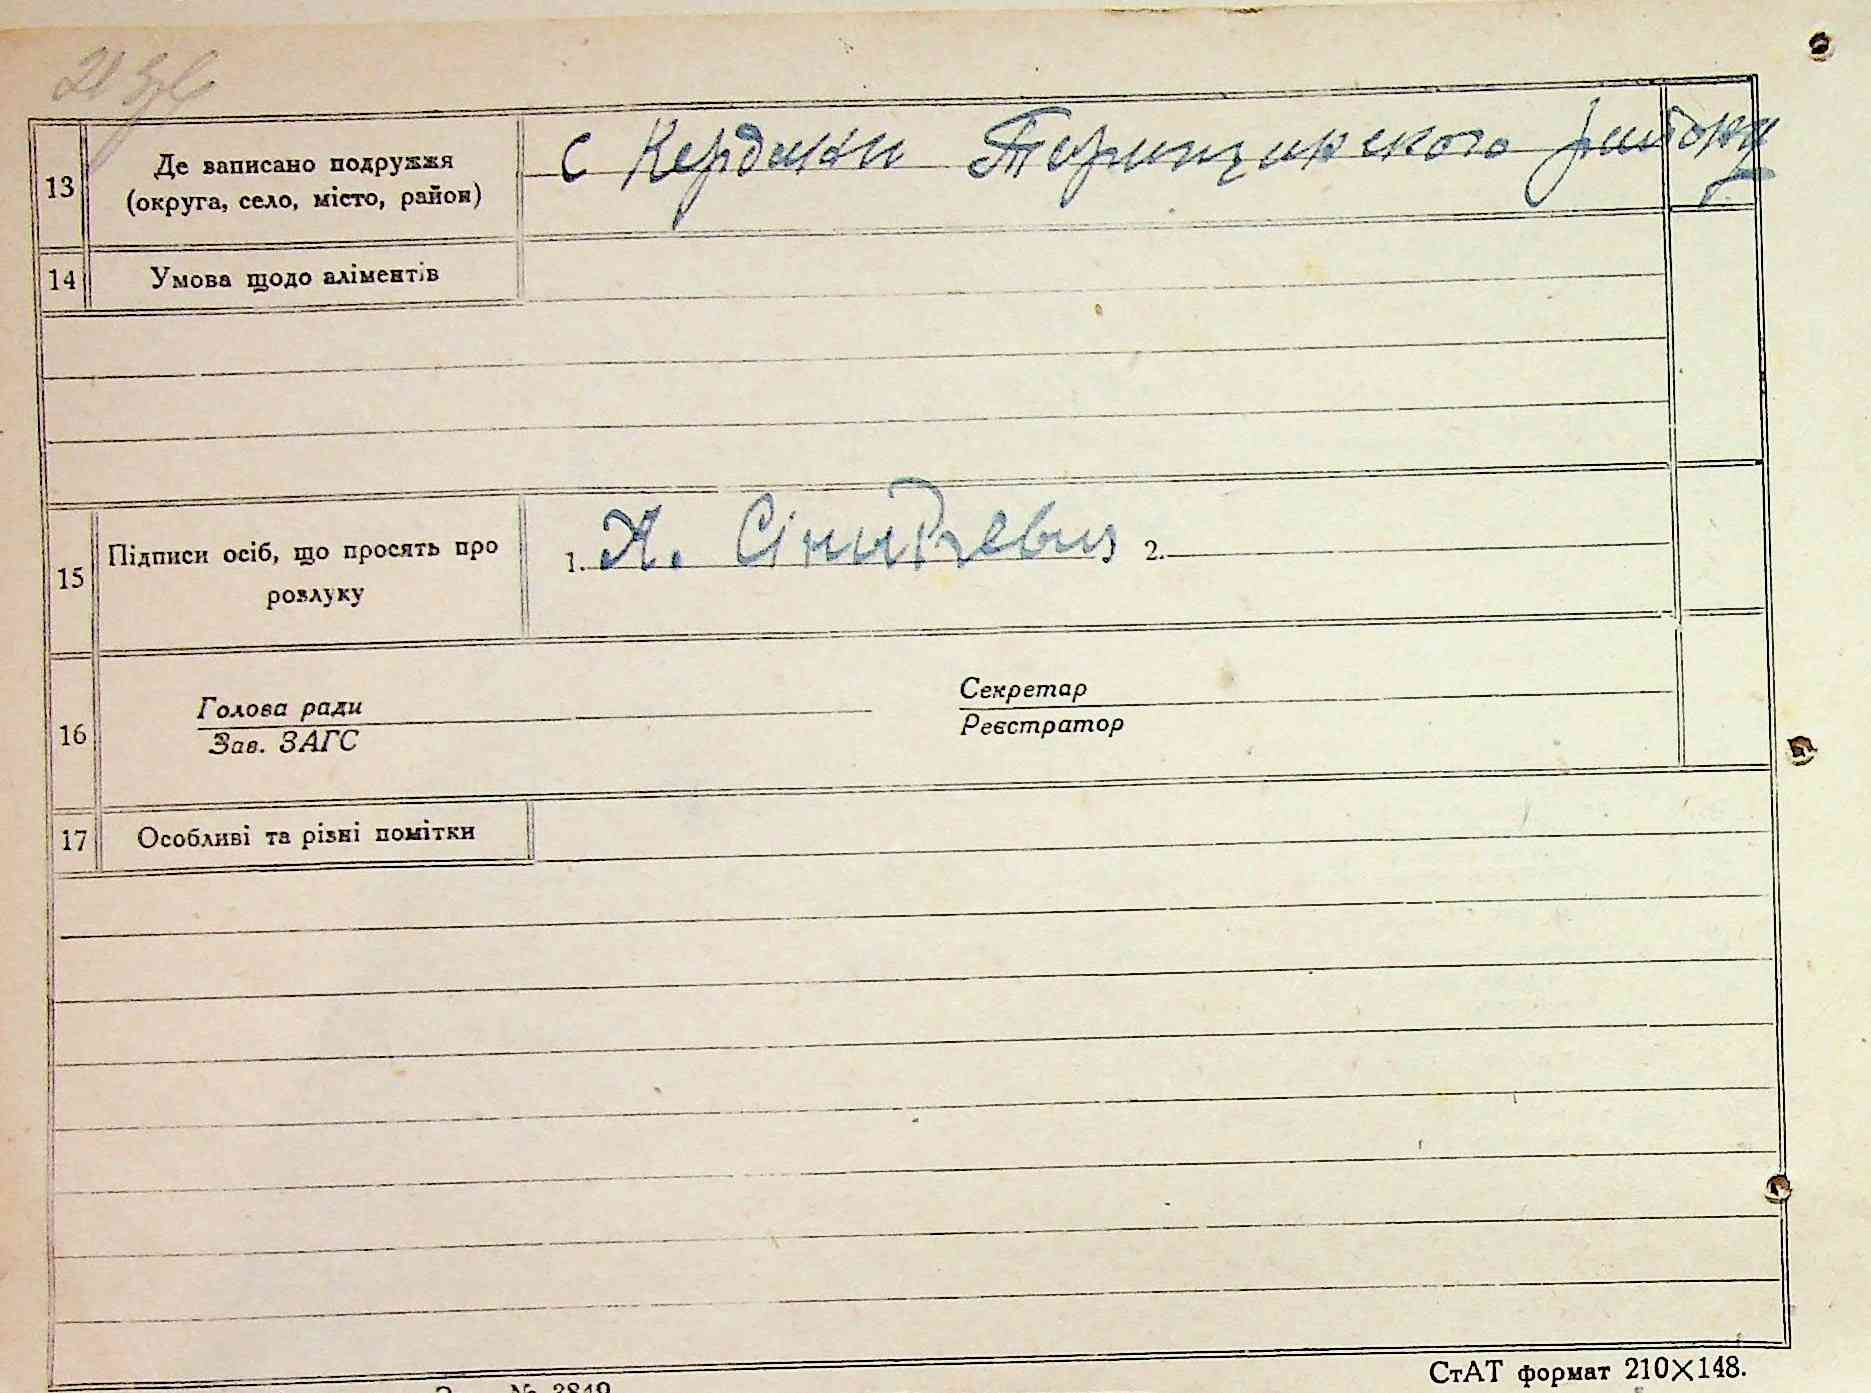 21 зв
13
Де записано подружжя
(округа, село, місто, район)
с Кердани Таращанского району
14
Умова щодо аліментів
15
Підписи осіб, що просять про
розлуку
1. Х. 2.
16
Голова ради
Зав. ЗАГС
Секретар
Реєстратор
17
Особливі та різні помітки
СтАТ формат 210×148.
№ 3849